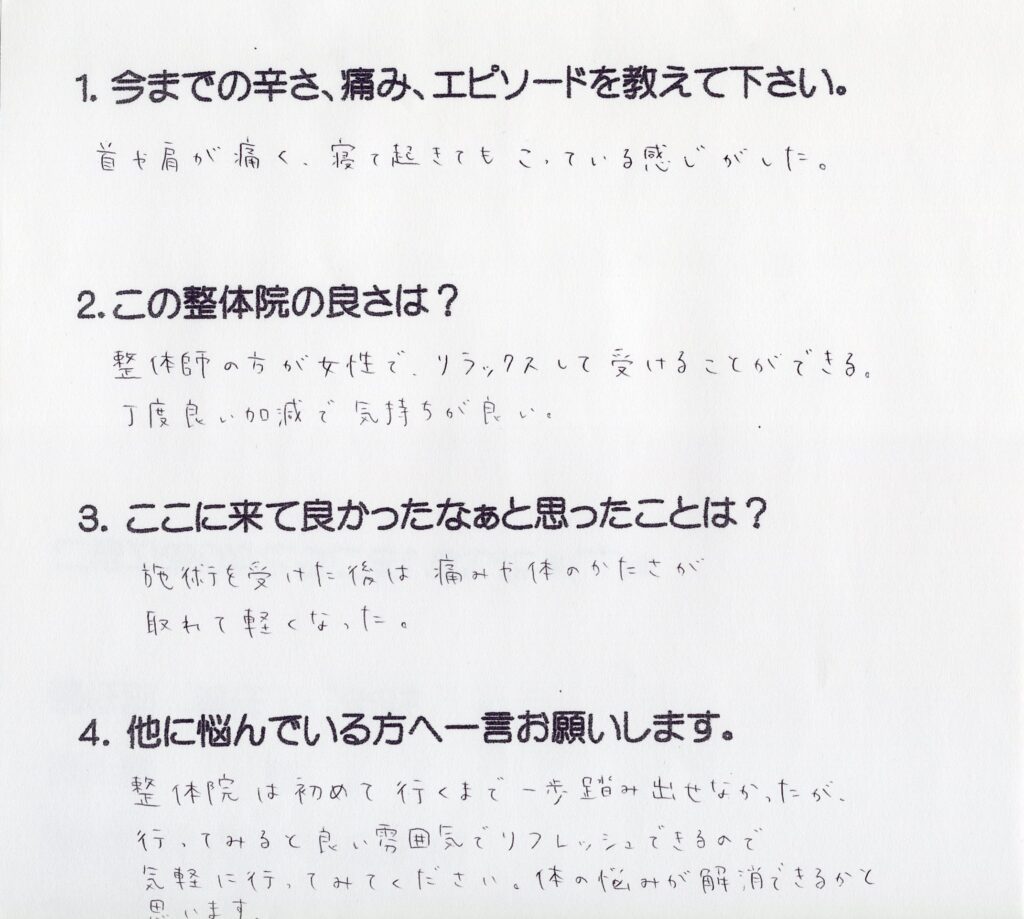 1. 今までの辛さ、痛み、エピソードを教えて下さい。
首や肩が痛く、寝て起きてもこっている感じがした。
2.この整体院の良さは？
整体師の方が女性で、リラックスして受けることができる。
丁度良い加減で気持ちが良い。
3. ここに来て良かったなぁと思ったことは？
施術を受けた後は痛みや体のかたさが
取れて軽くなった。
4. 他に悩んでいる方へ一言お願いします。
整体院は初めて行くまで一歩踏み出せなかったが、
行ってみると良い雰囲気でリフレッシュできるので
気軽に行ってみてください。体の悩みが解消できるかと
思います。